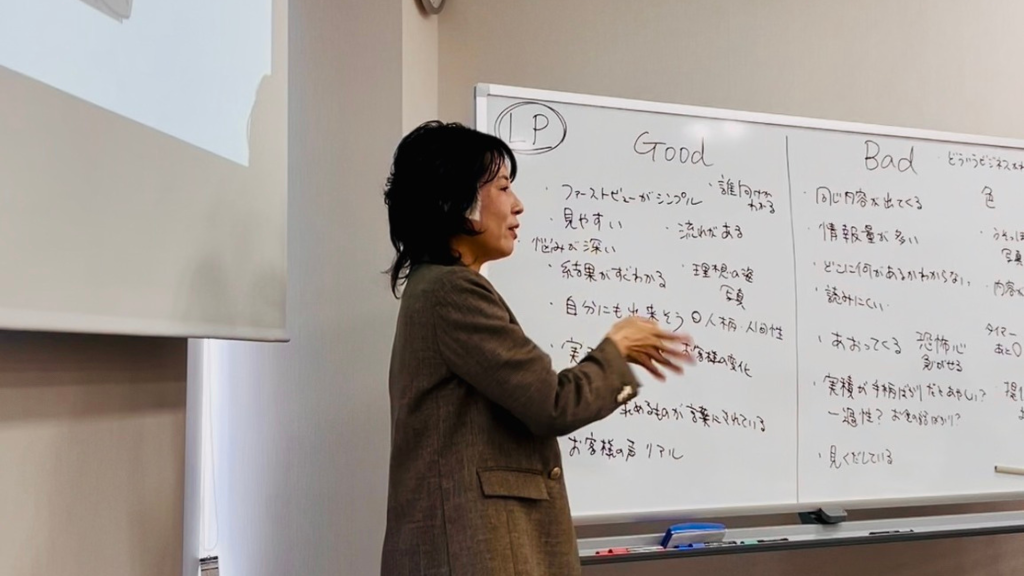 LP
Good
・ファーストビューがシンプル
・誰向けか
わかる
・見やすい
・流れがある
悩みが深い
・結果がすぐわかる
・理想の姿
写真
・自分にも出来そう
○人柄・人間性
・実
客様の変化
求めるものが言葉にされている
お客様の声 リアル
Bad
・どういうビジネス
・同じ内容が出てくる
色
・情報量が多い
写真
・どこに何があるかわからない
・内容
・読みにくい
・あおってくる
恐怖心
急がせる
タイマー
あと○
・実績が手柄ばかりだとあやしい?
一過性?
・見くだしている